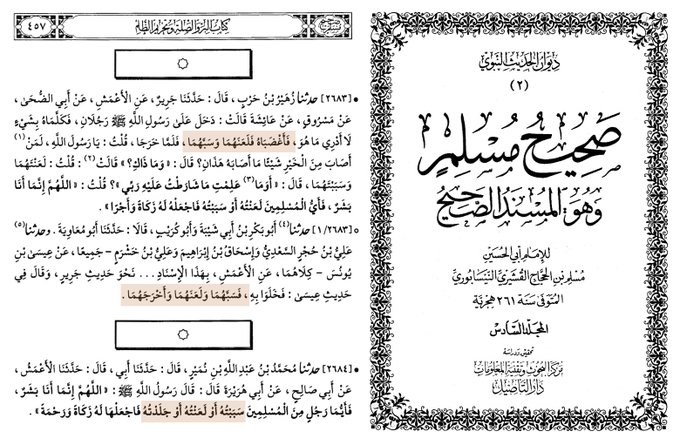 كتاب البر والصلة وتحريم الظلم
٤٥٧
• [٢٦٨٣] حدثنا زُهَيْرُ بْنُ حَرْبٍ ، قَالَ : حَدَّثَنَا جَرِيرٌ، عَنِ الْأَعْمَشِ ، عَنْ أَبِي الضُّحَى ،
عَنْ مَسْرُوقٍ، عَنْ عَائِشَةَ قَالَتْ : دَخَلَ عَلَى رَسُولِ اللَّهِ ﷺ رَجُلَانِ، فَكَلَّمَاهُ بِشَيْءٍ
لَا أَدْرِي مَا هُوَ ، فَأَغْضَبَاهُ فَلَعَنَهُمَا وَسَبَّهُمَا ، فَلَمَّا خَرَجَا، قُلْتُ : يَا رَسُولَ اللَّهِ، لَمَنْ (١)
أَصَابَ مِنَ الْخَيْرِ شَيْئًا مَا أَصَابَهُ هَذَانِ؟ قَالَ : « وَمَا ذَاكِ؟ » قَالَتْ (٢) : قُلْتُ : لَعَنْتَهُمَا
وَسَبَبْتَهُمَا ، قَالَ : « أَوَمَا (٣) عَلِمْتِ مَا شَارَطْتُ عَلَيْهِ رَبِّي ؟ » قُلْتُ : « اللَّهُمَّ إِنَّمَا أَنَا
بَشَرٌ ، فَأَيُّ الْمُسْلِمِينَ لَعَنْتُهُ أَوْ سَبَبْتُهُ فَاجْعَلْهُ لَهُ زَكَاةً وَأَجْرًا » .
○ [١/٢٦٨٣] حدثنا (٤) أَبُو بَكْرِ بْنُ أَبِي شَيْبَةَ وَأَبُو كُرَيْبٍ ، قَالَا : حَدَّثَنَا أَبُو مُعَاوِيَةَ . وحدثنا (٥)
عَلِيُّ بْنُ حُجْرٍ السَّعْدِيُّ وَإِسْحَاقُ بْنُ إِبْرَاهِيمَ وَعَلِيُّ بْنُ خَشْرَمٍ – جَمِيعًا، عَنْ عِيسَى بْنِ
يُونُسَ – كِلَاهُمَا ، عَنِ الْأَعْمَشِ ، بِهَذَا الْإِسْنَادِ ... نَحْوَ حَدِيثِ جَرِيرٍ ، وَقَالَ فِي
حَدِيثِ عِيسَى : فَخَلَوَا بِهِ ، فَسَبَّهُمَا وَلَعَنَهُمَا وَأَخْرَجَهُمَا .
• [٢٦٨٤] حدثنا مُحَمَّدُ بْنُ عَبْدِ اللَّهِ بْنِ نُمَيْرٍ ، قَالَ : حَدَّثَنَا أَبِي ، قَالَ : حَدَّثَنَا الْأَعْمَشُ ،
عَنْ أَبِي صَالِحٍ ، عَنْ أَبِي هُرَيْرَةَ قَالَ : قَالَ رَسُولُ اللَّهِ ﷺ : « اللَّهُمَّ إِنَّمَا أَنَا بَشَرٌ ،
فَأَيُّمَا رَجُلٍ مِنَ الْمُسْلِمِينَ سَبَبْتُهُ أَوْ لَعَنْتُهُ أَوْ جَلَدْتُهُ فَاجْعَلْهَا لَهُ زَكَاةً وَرَحْمَةً » .
ديوان الحديث النبوي
(٢)
صحيح مسلم
وهو المسند الصحيح
للإمام أبي الحسين
مسلم بن الحجاج القشيري النيسابوري
المتوفى سنة ٢٦١ هجرية
المجلد السادس
تحقيق ودراسة
مركز البحوث وتقنية المعلومات
دار التأصيل